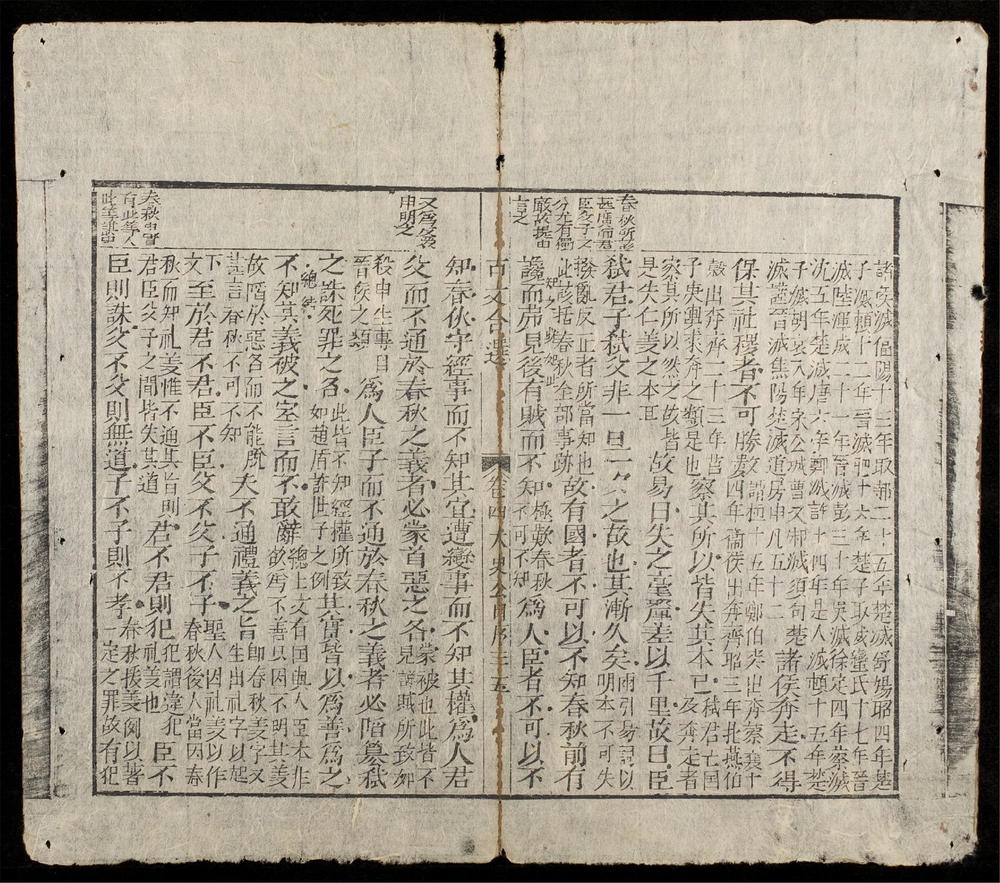 春秋所該
甚廣而君
臣父子之
分尤有獨
嚴故提出
言之
諸侯滅偪陽十三年取邿二十五年楚滅舒鳩昭四年楚
子滅賴十二年晉滅肥十六年楚子取戎蠻氏十七年晉
滅陸渾戎二十一年晉滅彭三十年吳滅徐定四年蔡滅
沈五年楚滅唐六年鄭滅許十四年是人滅頓十五年楚
子滅胡哀八年宋公滅曹又邾滅須句楚
滅蓼晉滅焦陽楚滅道房申凡五十二
諸侯奔走不得
保其社稷者不可勝數
桓十五年鄭伯突出奔蔡襄十
四年衞侯出奔齊昭三年北燕伯
穀出奔齊二十三年莒
子庚輿來奔之類是也
察其所以皆失其本已
弒君亡國
及奔走者
察其所以然之故皆
是失仁義之本耳
故易曰失之毫釐差以千里故曰臣
弒君子弒父非一旦一夕之故也其漸久矣
兩引易詞以
明本不可失
撥亂反正者所當知也
此該括春秋全部事跡
故有國者不可以不知春秋前有
讒而弗見後有賊而不知
極歎春秋
不可不知
爲人臣者不可以不
古文合選
卷四 太史公自序 三五
又爲爰
申明之
春秋中實
有此等人
此等事
知春秋守經事而不知其宜遭變事而不知其權爲人君
父而不通於春秋之義者必蒙首惡之名
蒙被也此皆不
見讒賊所致如
殺申生專目
晉侯之類
爲人臣子而不通於春秋之義者必陷篡弒
之誅死罪之名
此皆不知經權所致
如趙盾許世子之例
其實皆以爲善爲之
不知其義被之空言而不敢辭
總上文有國與人臣本非
欲爲不善只因不明其義
故陷於惡名而不能脫
甚言春秋不可不知
夫不通禮義之旨
即春秋義字又
生出禮字以起
下
文至於君不君臣不臣父不父子不子
聖人因禮義以作
春秋後人當因春
秋而知禮義惟不通其旨則
君臣父子之間皆失其道
君不君則犯
犯謂違犯
禮義也
臣不
臣則誅父不父則無道子不子則不孝
春秋援義例以著
一定之罪故有犯